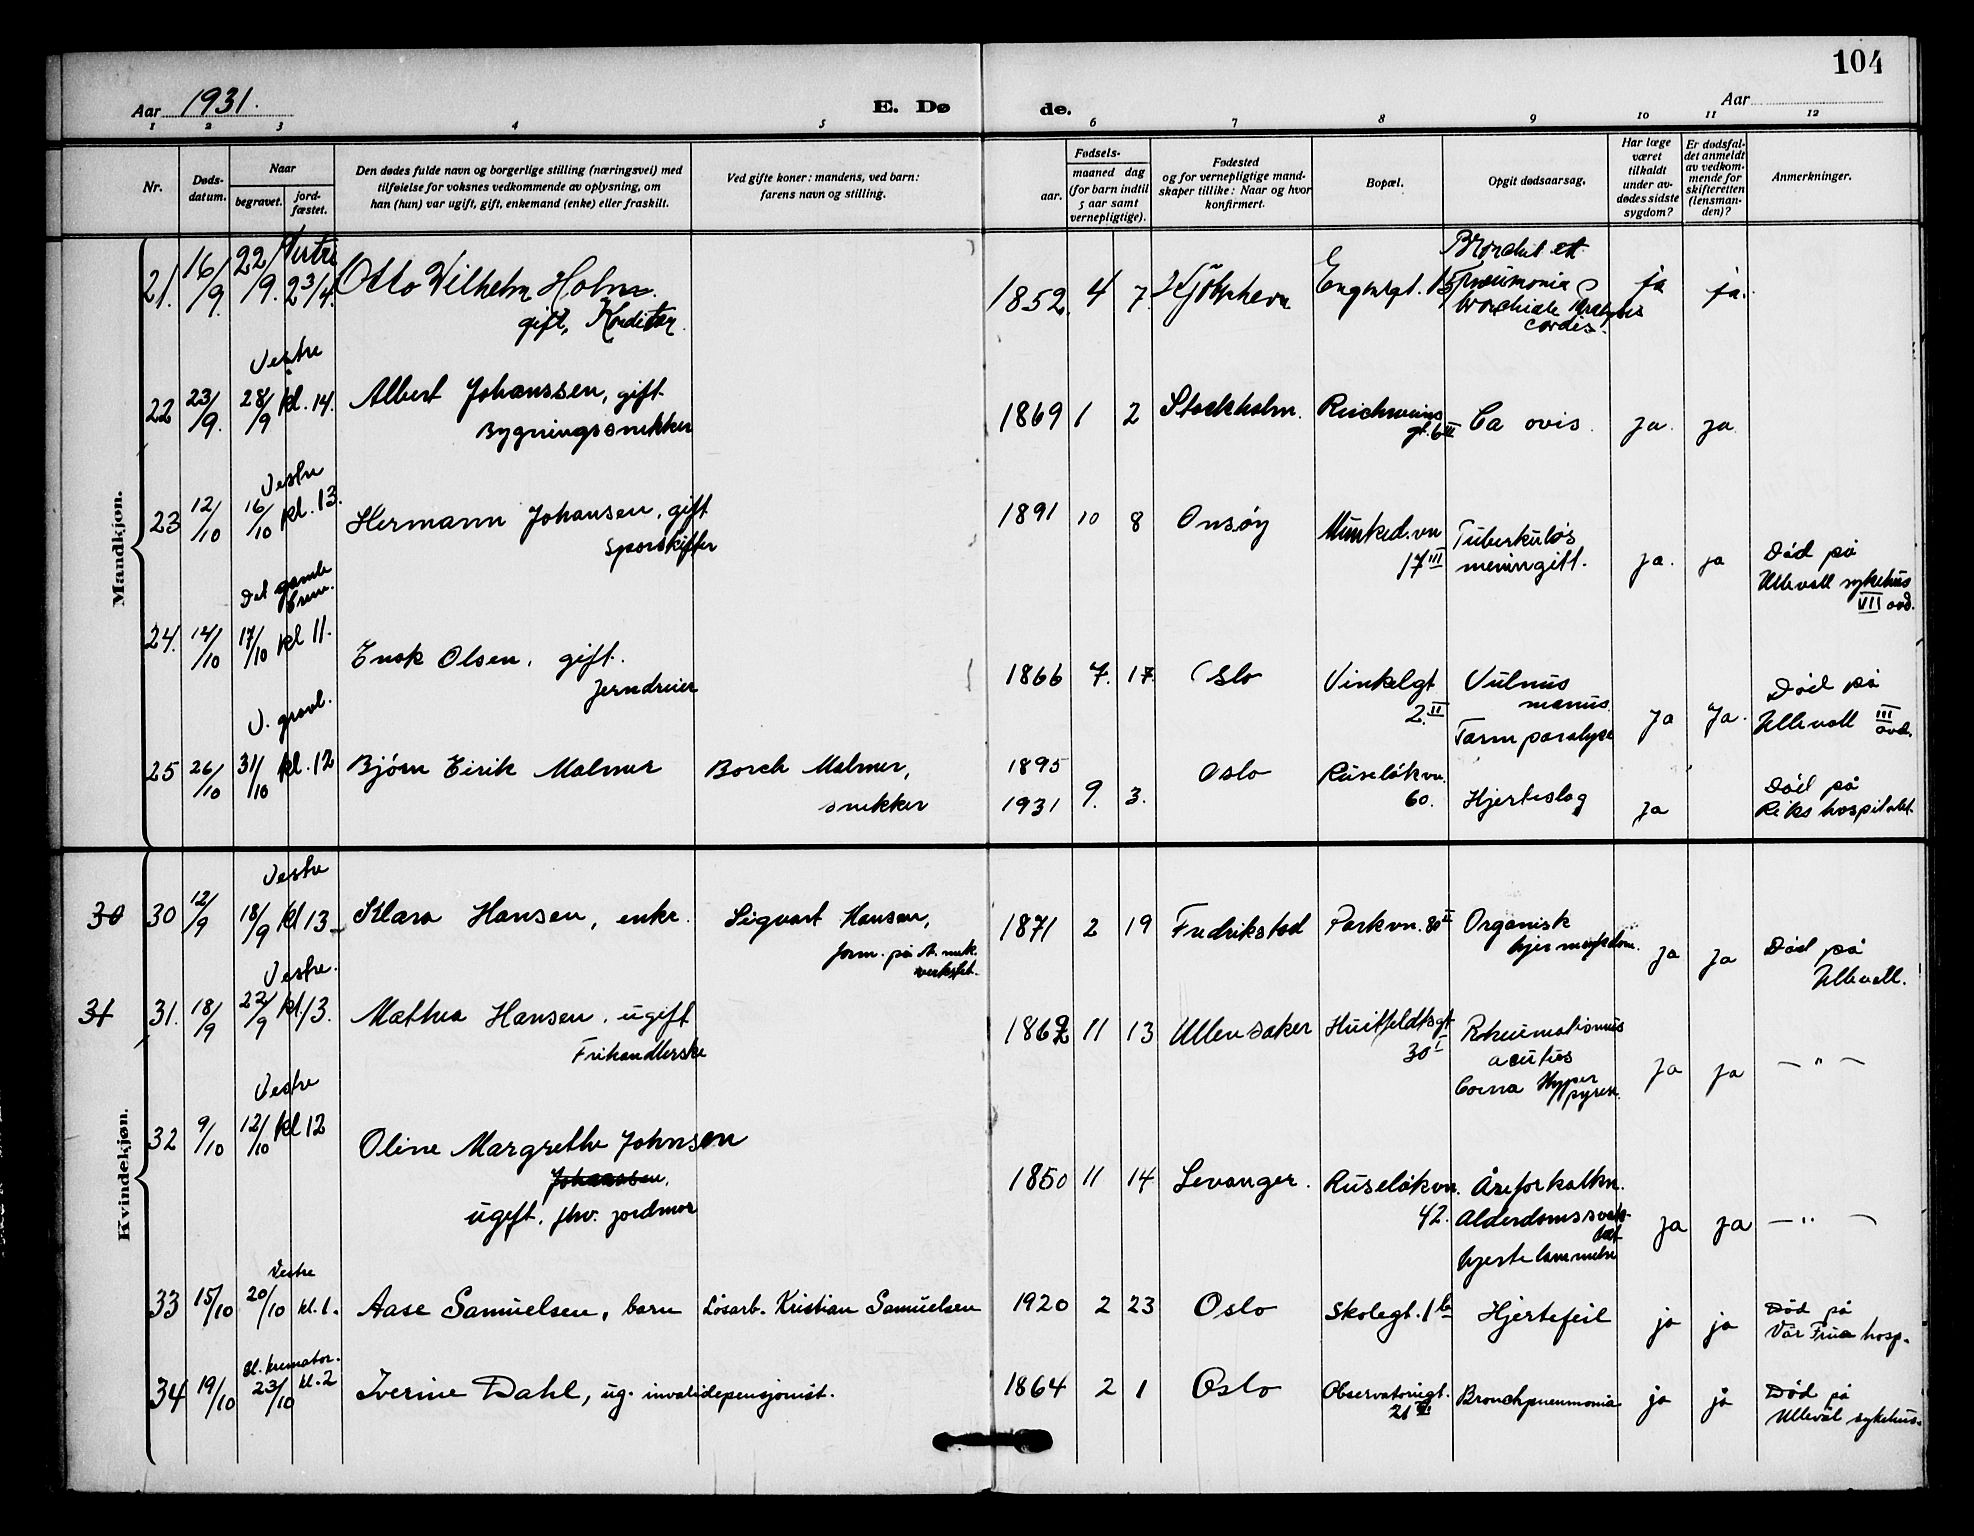 104
Aar 1931.
E. Dø
de.
Aar
1 2 3 4 5 6 7 8 9 10 11 12
Nr.
Døds-
datum.
Naar
begravet.
jord-
fæstet.
Den dødes fulde navn og borgerlige stilling (næringsvei) med
tilføielse for voksnes vedkommende av oplysning, om
han (hun) var ugift, gift, enkemand (enke) eller fraskilt.
Ved gifte koner: mandens, ved barn:
farens navn og stilling.
Fødsels-
aar.
maaned dag
(for barn indtil
5 aar samt
vernepligtige).
Fødested
og for vernepligtige mand-
skaper tillike: Naar og hvor
konfirmert.
Bopæl.
Opgit dødsaarsag.
Har læge
været
tilkaldt
under av-
dødes sidste
sygdom?
Er dødsfal-
det anmeldt
av vedkom-
mende for
skifteretten
(lensman-
den)?
Anmerkninger.
Mandkjøn.
21. 16/9. 22/9. 23/4. Otto Wilhelm Holm. 1852. 4 7. ja ja.
gift, Konditor
cordis.
Vestre
22 23/9. 28/9 kl. 14. Albert Johanssen, gift 1869 1 2 Stockholm. Ca ovis. ja. ja
Bygningssnekker gt. 6 III
Vestre
23 12/10 16/10 kl. 13. Hermann Johansen, gift 1891 10 8 Onsøy Munked.vn Tuberkuløs
Sporskifter 17 III meningitt. ja. ja Død på
Ullevall sykehus
VII avd.
Det gamle
Krem.
24. 14/10 17/10 kl 11. Enok Olsen, gift. 1866 7. 17. Oslo Vinkelgt Vulnus
Jerndreier 2. II manus. ja ja. Død på
Tarmparalyse Ullevall III avd.
V. gravl.
25 26/10 31/10 kl. 12 Bjørn Eirik Malmer Borch Malmer, 1895 Oslo Ruseløkvn.
snekker 1931 9. 3. 60. Hjerteslag ja Død på
Rikshospitalet.
Kvindekjøn.
Vestre
30 30 12/9 18/9 kl 13 Klara Hansen, enke. Sigvart Hansen, 1871 2 19 Fredrikstad Parkvn. 80 II Organisk
form. på mek. hjertesykdom. ja ja Død på
verksted. Ullevall.
Vestre.
31 31. 18/9 22/9 kl. 13. Mathea Hansen, ugift 1862 11 13 Ullensaker Huitfeldtsgt Rheumatismus
Frihandlerske 30 I acutus
Coma Hyper ja ja — " —
pyrexi.
Vestre
32 9/10 12/10 kl 12 Oline Margrethe Johnsen
Johanssen, 1850 11 14 Levanger. Ruseløkvn. Åreforkalkn.
ugift, fhv. jordmor 42. Alderdomssvak-
het ja ja — " —
hjertelammelse
Vestre
33 15/10 20/10 kl. 1. Aase Samuelsen, barn Løsarb. Kristian Samuelsen 1920 2 23 Oslo Skolegt. 1 b Hjertefeil ja ja Død på
Vår Frue hosp.
Gl. kremator.
34 19/10 23/10 kl. 2 Iverine Dahl, ug. invalidepensjonist. 1864 2 1 Oslo Observatoriegt. Bronchpneumonia ja ja Død på
Ullevål sykehus.